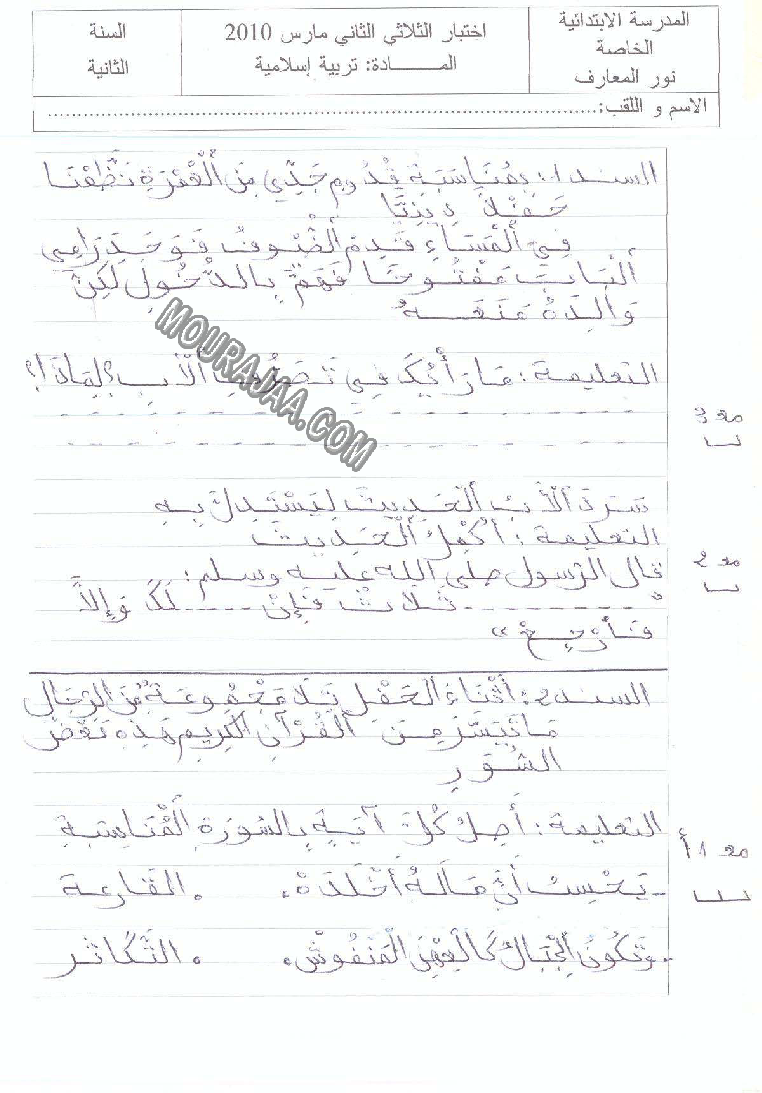 المدرسة الابتدائية
الخاصة
نور المعارف
اختبار الثلاثي الثاني مارس 2010
المــــادة: تربية إسلامية
السنة
الثانية
الاسم و اللقب:........................................................................
السند 1: بِمُنَاسَبَةِ قُدُومِ جَدِّي مِنَ الْعُمْرَةِ نَظَّمْنَا
حَفْلاً دِينِيًّا
فِي الْمَسَاءِ قَدِمَ الضُّيُوفُ فَوَجَدَ رَامِي
الْبَابَ مَفْتُوحًا فَهَمَّ بِالدُّخُولِ لَكِنَّ
وَالِدَهُ مَنَعَهُ
MOURAJAA.COM
التعليمة: مَا رَأْيُكَ فِي تَصَرُّفِ الْأَبِ؟ لِمَاذَا؟
مع 3
سَرَدَ الْأَبُ الْحَدِيثَ لِيَسْتَدِلَّ بِهِ
التعليمة: أُكْمِلُ الْحَدِيثَ
قال الرسول صلى الله عليه وسلم:
"........... ثَلَاثٌ فَإِنْ ...... لَكَ وَإِلاَّ
فَارْجِعْ"
مع 2
السند 2: أَثْنَاءَ الْحَفْلِ تَلَا مَجْمُوعَةٌ مِنَ الرِّجَالِ
مَا تَيَسَّرَ مِنَ الْقُرْآنِ الْكَرِيمِ هَذِهِ بَعْضُ
السُّوَرِ
التعليمة: أَصِلُ كُلَّ آيَةٍ بِالسُّورَةِ الْمُنَاسِبَةِ
مع 1 أ
- يَحْسِبُ أَنَّ مَالَهُ أَخْلَدَهُ. . القَارِعة
- وَتَكُونُ الْجِبَالُ كَالْعِهْنِ الْمَنْفُوشِ. . التَّكَاثر